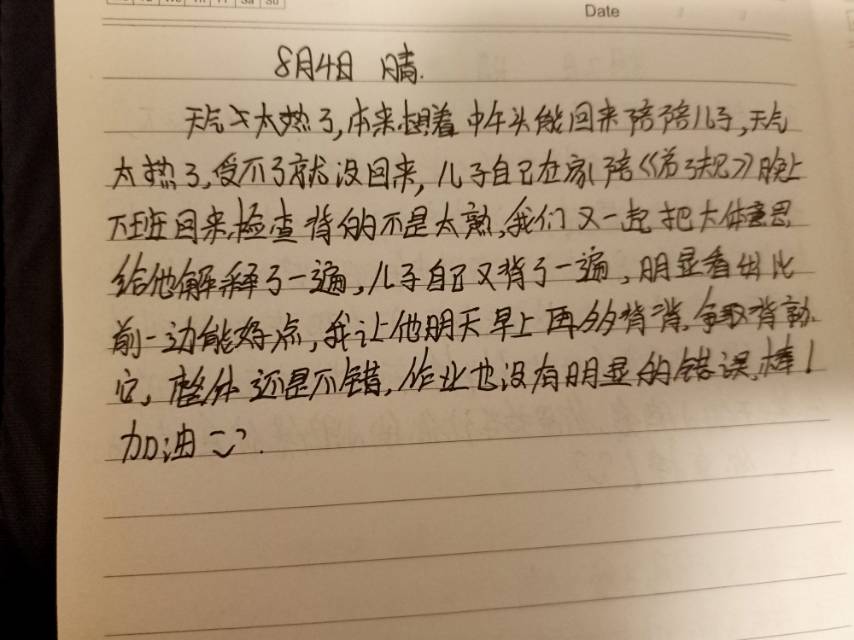 Date
8月4日 晴.
天气太热了,本来想着中午头能回来陪陪儿子,天气
太热了,受不了就没回来,儿子自己在家陪《弟子规》晚上
下班回来,检查背的不是太熟,我们又一起把大体意思
给他解释了一遍,儿子自己又背了一遍,明显看出比
前一边能好点,我让他明天早上再多背背,争取背熟
它,整体还是不错,作业也没有明显的错误,棒!
加油